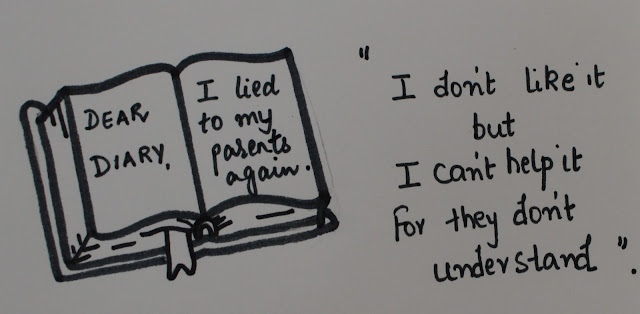 DEAR
DIARY,
I lied
to my
parents
again.
"
I don't like it
but
I can't help it
For they don't
understand".